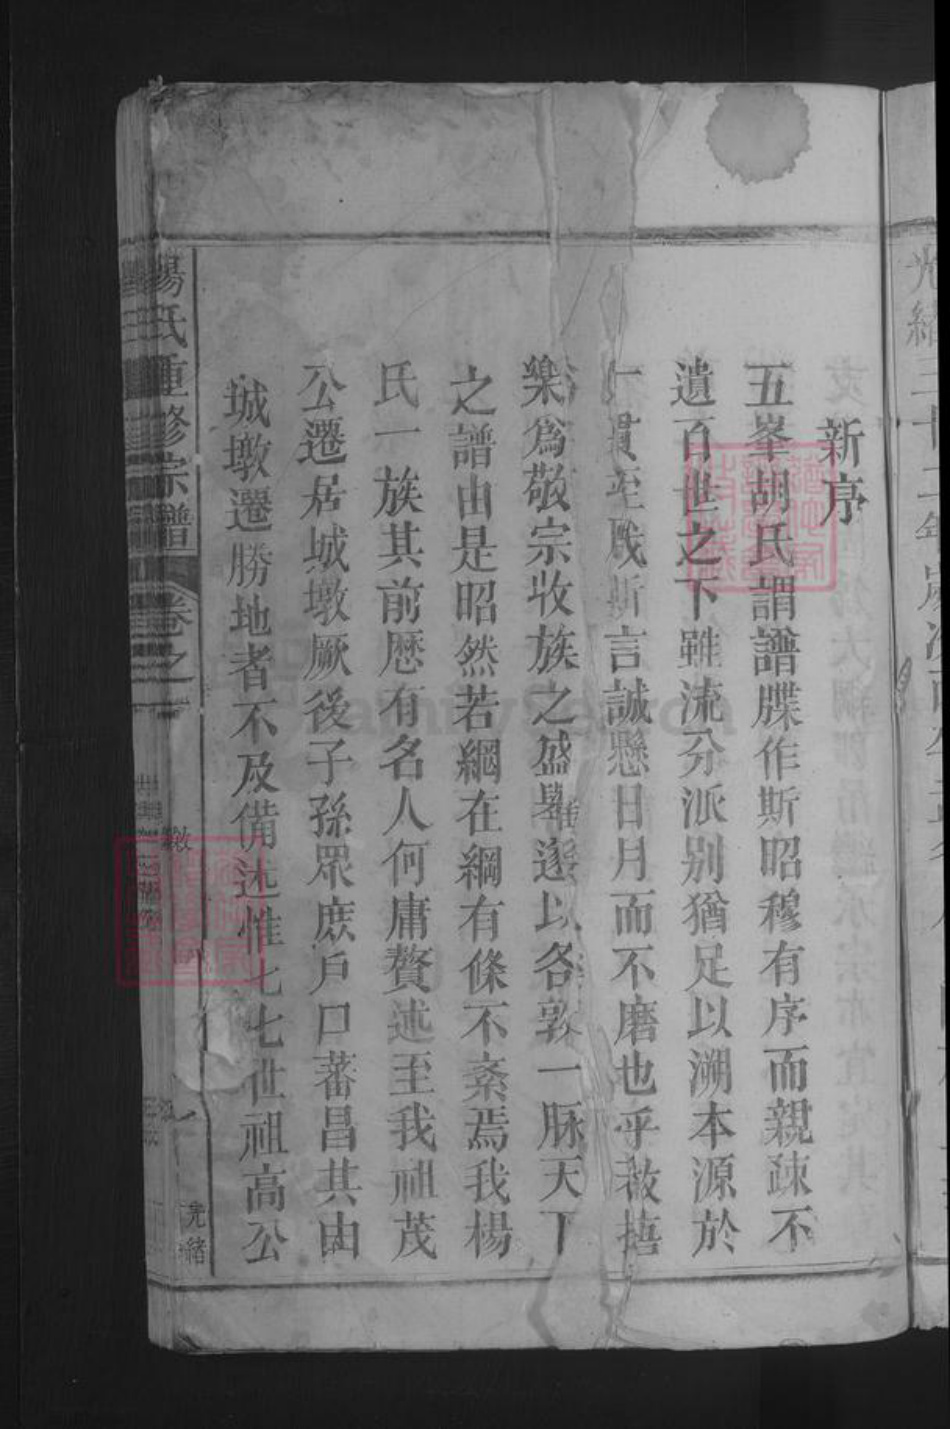 光緒三十二年歲次丙午
新序
五峯胡氏謂譜牒作斯昭穆有序而親疎不
遺百世之下雖流分派別猶足以溯本源於
一貫至哉斯言誠懸日月而不磨也乎
樂為敬宗收族之盛舉遂以各敦一脉天下
之譜由是昭然若網在綱有條不紊焉我楊
氏一族其前歴有名人何庸贅述至我祖茂
公遷居城墩厥後子孫眾庶戶口蕃昌其由
城墩遷勝地者不及備述惟七七世祖高公
楊氏重修宗譜
卷之
光緒